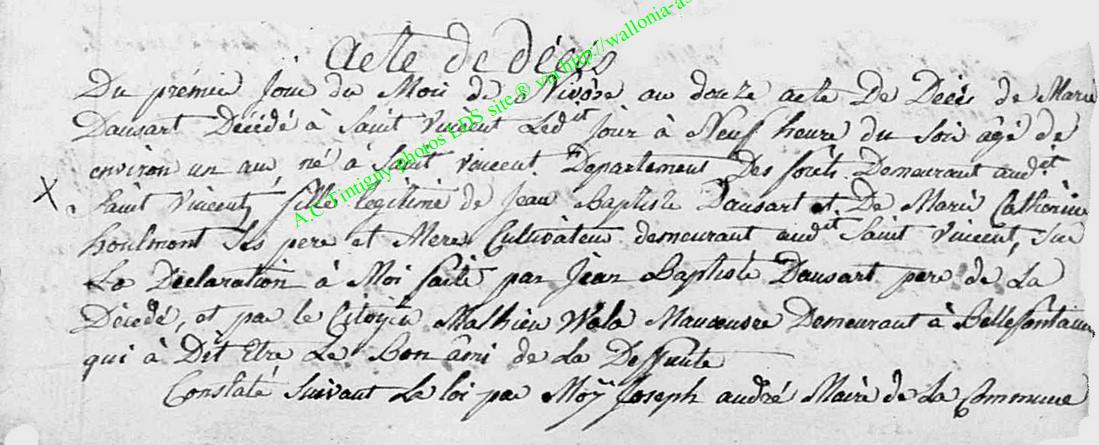 Acte de décés
Du prémier Jour du Mois de Nivôse an douze acte De Décès de Marie
Dausart Décédé à Saint Vincent Ledit Jour à Neuf heure du Soir âgé de
environ un an, né à Saint Vincent Departement Des forêts Demeurant audit
X Saint Vincent, fille légitime de Jean Baptiste Dausart et De Marie Catherine
houlmont Ses pere et Mere Cultivateur demeurant audit Saint Vincent, Sur
La Déclaration à Moi faite par Jean Baptiste Dausart pere de La
Décédé, et par le Citoyen Mathieu Wala Manoeuvre Demeurant à Bellefontaine
qui à Dit Etre Le Bon âmi de La Deffunte
Constaté Suivant La loi par Moÿ Joseph andré Maire de La Commune
A.C Tintigny photos LDS site ® via http://wallonia-as